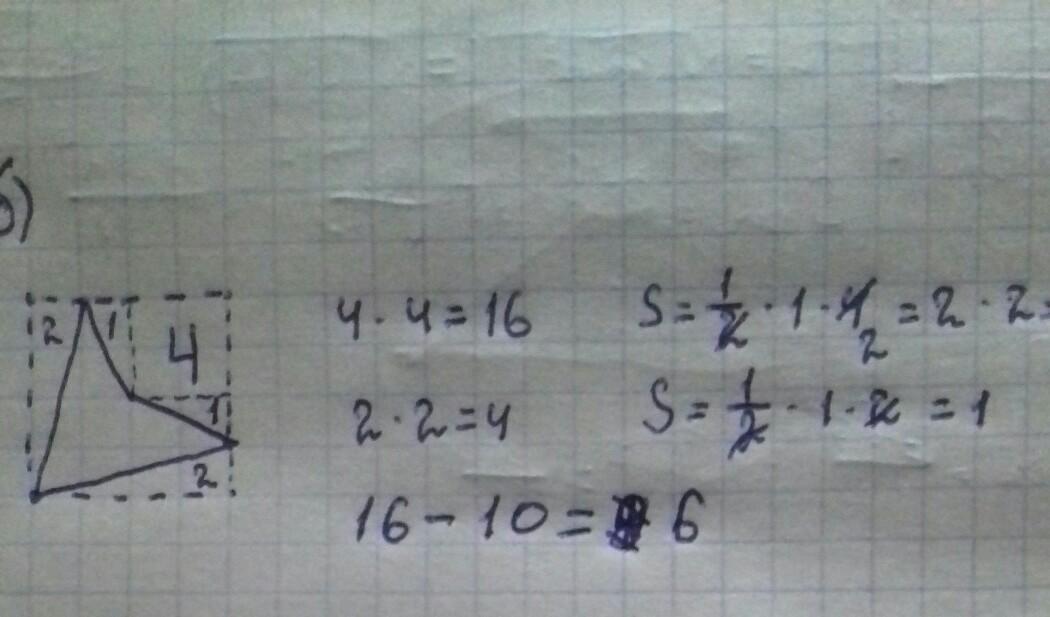 б)
2 1 4
1
2
4 · 4 = 16 S = 1/2 · 1 · 4 2 = 2 · 2 =
2 · 2 = 4 S = 1/2 · 1 · 2 = 1
16 - 10 = 6